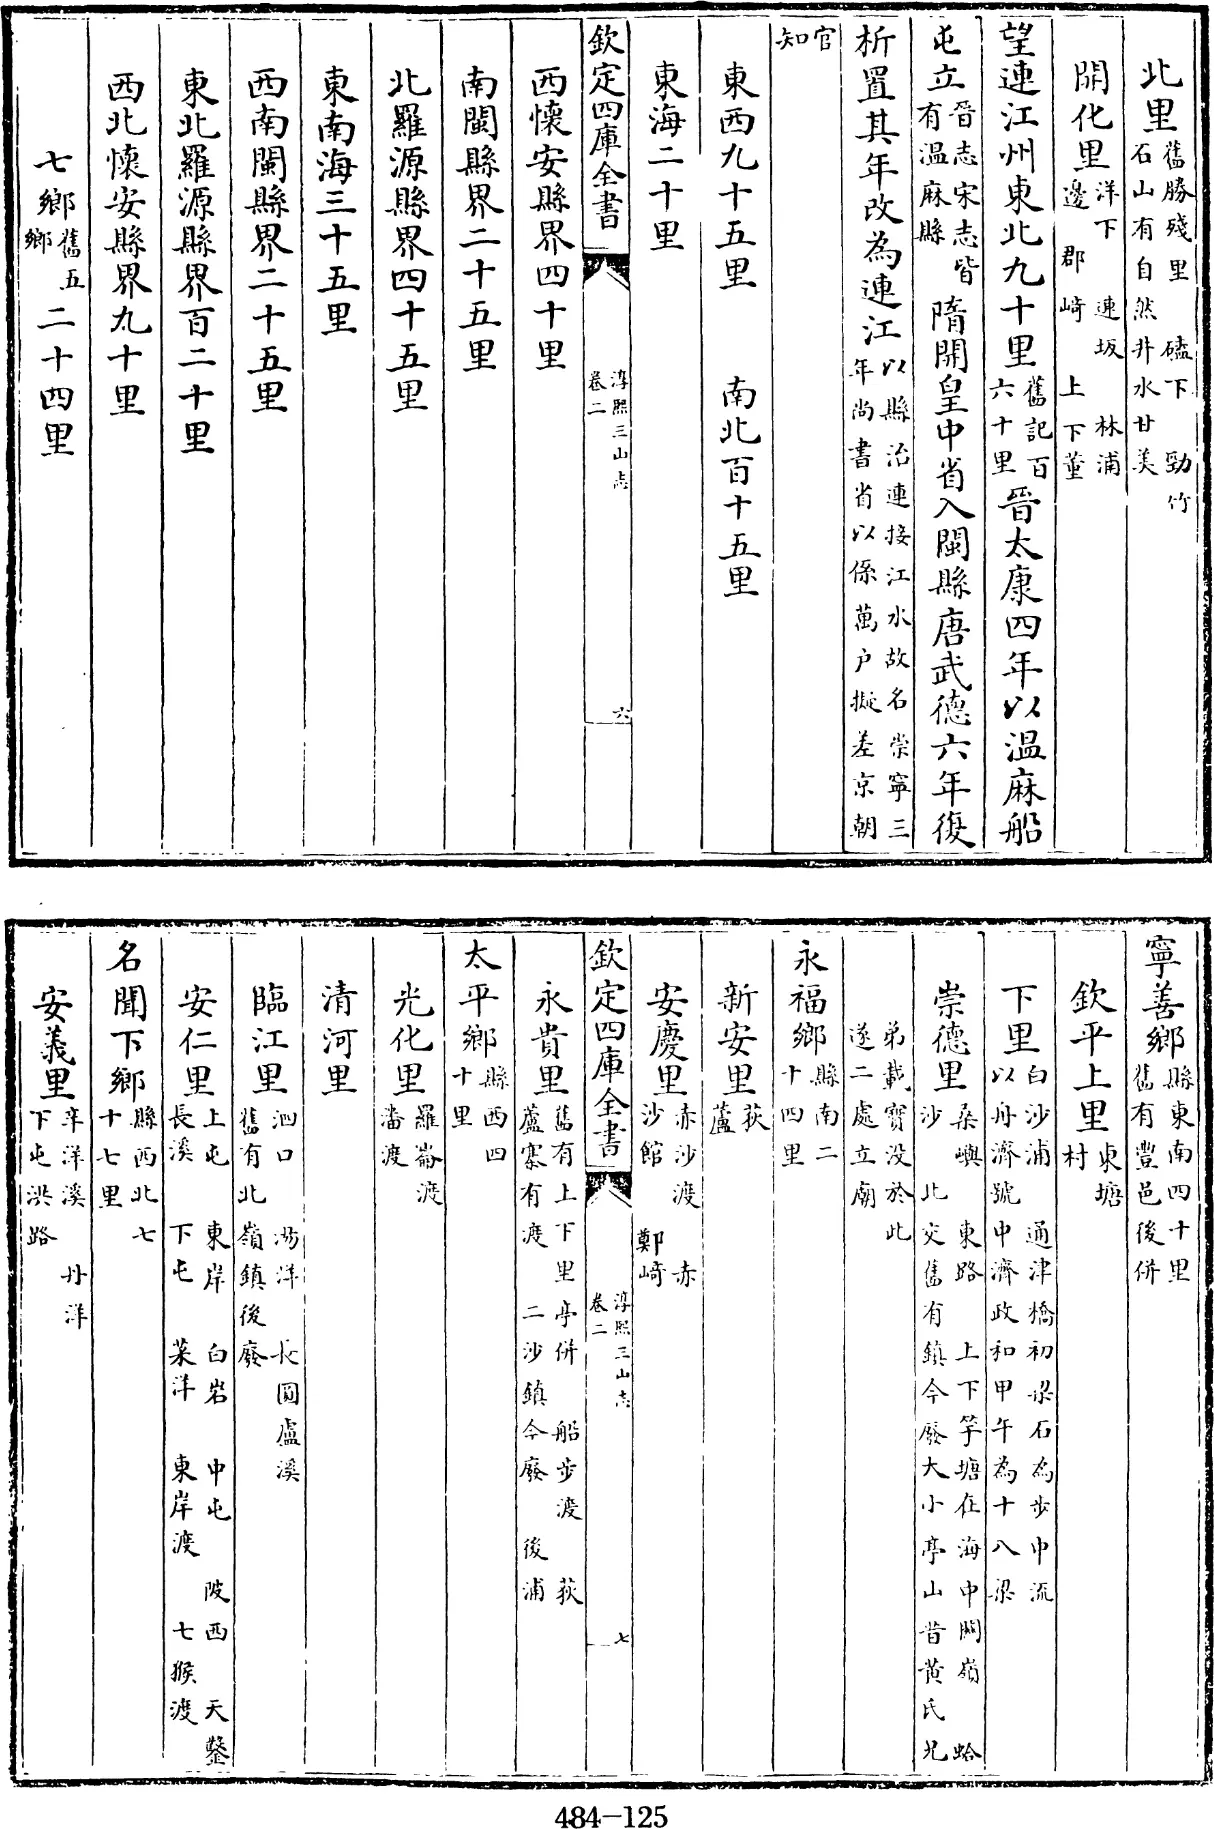 北里舊勝殘里 磕下 勁竹石山有自然井水甘美
開化里洋下 連坂 林浦邊 郡﨑 上下董
望連江州東北九十里舊記百六十里晉太康四年以温麻船
屯立晉志宋志皆有温麻縣隋開皇中省入閩縣唐武德六年復
析置其年改為連江以縣治連接江水故名崇寧三年尚書省以係萬户擬差京朝
官知
東西九十五里 南北百十五里
東海二十里
欽定四庫全書 淳熙三山志卷二 六
西懷安縣界四十里
南閩縣界二十五里
北羅源縣界四十五里
東南海三十五里
西南閩縣界二十五里
東北羅源縣界百二十里
西北懷安縣界九十里
七鄉舊五鄉二十四里
寧善鄉縣東南四十里舊有豐邑後併
欽平上里東塘村
下里白沙浦 通津橋初梁石為步中流以舟濟號中濟政和甲午為十八梁
崇德里桑嶼 東路 上下竽塘在海中關嶺 蛤沙 北交舊有鎮今廢大小亭山昔黄氏兄
弟載寶没於此遂二處立廟
永福鄉縣南二十四里
新安里荻蘆
安慶里赤沙渡 赤沙館 鄭﨑
欽定四庫全書 淳熙三山志卷二 七
永貴里舊有上下里亭併 船步渡 荻蘆寨有渡 二沙鎮今廢 後浦
太平鄉縣西四十里
光化里羅崙渡潘渡
清河里
臨江里泗口 湯洋 長圓盧溪舊有北嶺鎮後廢
安仁里上屯 東岸 白岩 中屯 陂西 天鏧長溪 下屯 菜洋 東岸渡 七猴渡
名聞下鄉縣西北七十七里
安義里辛洋溪 丹洋下屯洪路
484-125